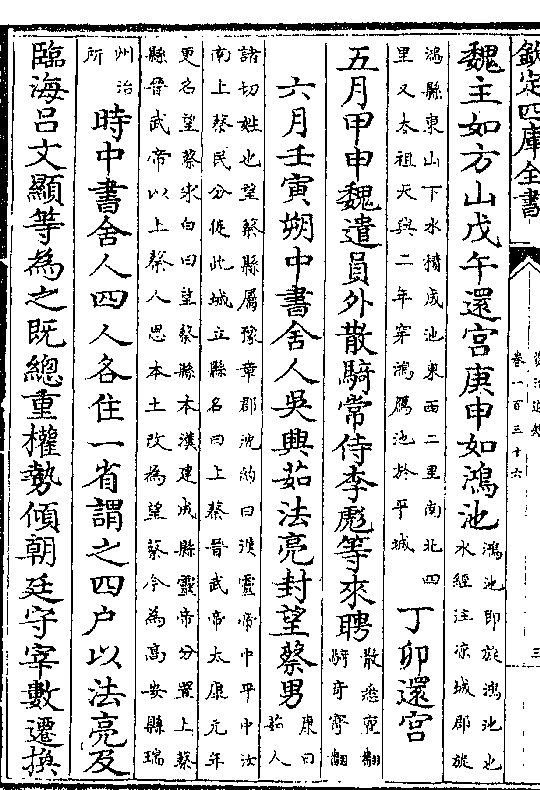 欽定四庫全書
資治通鑑
卷一百三十六
三
魏主如方山戊午還宮庚申如鴻池鴻池即旋鴻池也
水經注涼城郡旋
鴻縣東山下水積成池東西二里南北四
里又太祖天興二年穿鴻鴈池於平城丁卯還宮
五月甲申魏遣員外散騎常侍李彪等來聘散悉亶翻
騎奇寄翻
六月壬寅朔中書舍人吳興茹法亮封望蔡男康曰
茹人
諸切姓也望蔡縣屬豫章郡沈約曰漢靈帝中平中汝
南上蔡民分徙此城立縣名曰上蔡晉武帝太康元年
更名望蔡宋白曰望蔡縣本漢建成縣靈帝分置上蔡
縣晉武帝以上蔡人思本土改為望蔡今為高安縣瑞
州治
所時中書舍人四人各住一省謂之四户以法亮及
臨海呂文顯等為之既總重權勢傾朝廷守宰數遷換